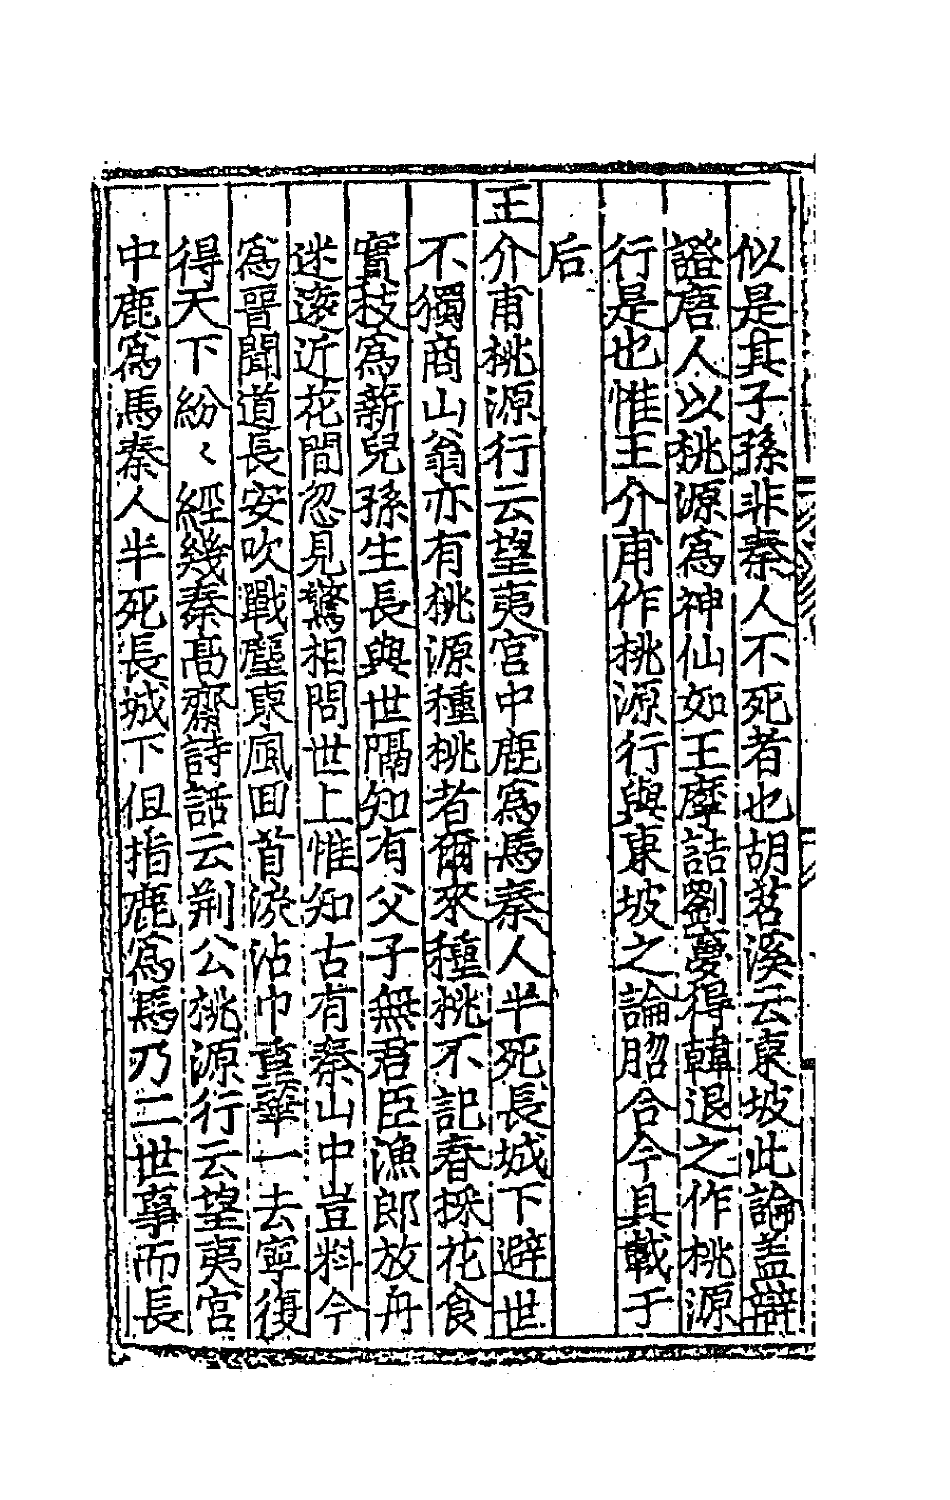 似是其子孫非秦人不死者也胡苕溪云東坡此論盖辯
證唐人以桃源爲神仙如王摩詰劉夢得韓退之作桃源
行是也惟王介甫作桃源行與東坡之論脗合今具載于
后
王介甫桃源行云望夷宮中鹿爲馬秦人半死長城下避世
不獨商山翁亦有桃源種桃者爾來種桃不記春採花食
實枝爲薪兒孫生長與世隔知有父子無君臣漁郎放舟
迷逺近花間忽見驚相問世上惟知古有秦山中豈料今
爲晉聞道長安吹戰塵東風囬首淚沾巾重華一去寧復
得天下紛〻經幾秦髙齋詩話云荆公桃源行云望夷宮
中鹿爲馬秦人半死長城下但指鹿爲馬乃二世事而長